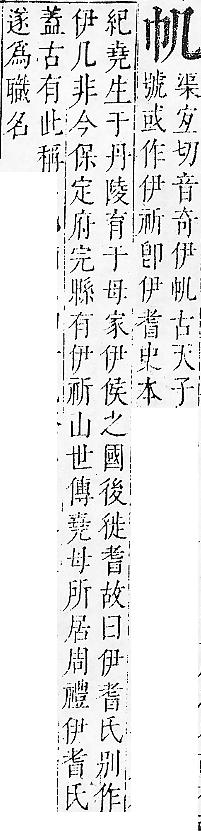 渠宐切音奇伊古天子
號或作伊祈卽伊耆史本
紀堯生于丹陵育于母家伊侯之國後徙耆故曰伊耆氏別作
伊几非今保定府完縣有伊祈山世傳堯母所居周禮伊耆氏
蓋古有此稱
遂爲職名